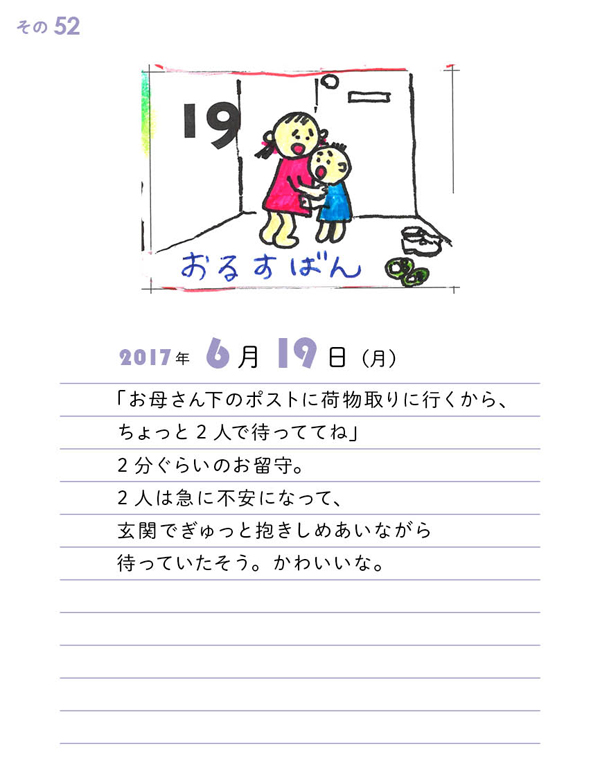 その 52
19
おるすばん
2017年 6月 19日（月）
「お母さん下のポストに荷物取りに行くから、
ちょっと2人で待っててね」
2分ぐらいのお留守。
2人は急に不安になって、
玄関でぎゅっと抱きしめあいながら
待っていたそう。かわいいな。